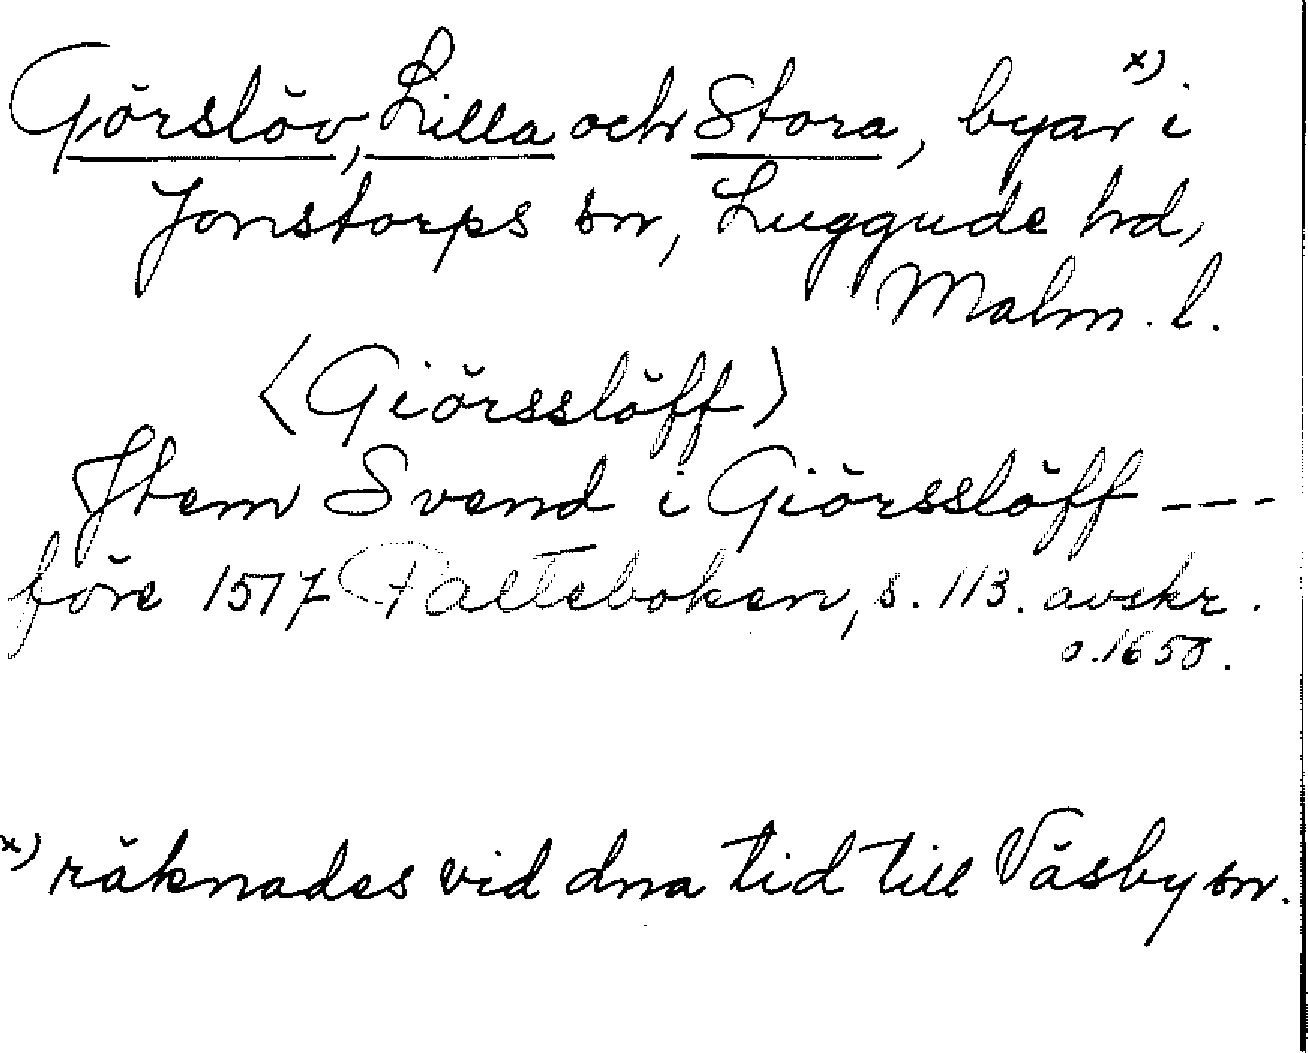 Görslöv, Lilla och Stora, byar x) i
Jonstorps sn, Luggude hd,
Malm. l.
⟨Giörsslöff⟩
Jtem Svend i Giörsslöff ---
före 1517 Palteboken, s. 113. avskr.
o. 1650.
x) räknades vid dna tid till Väsby sn.